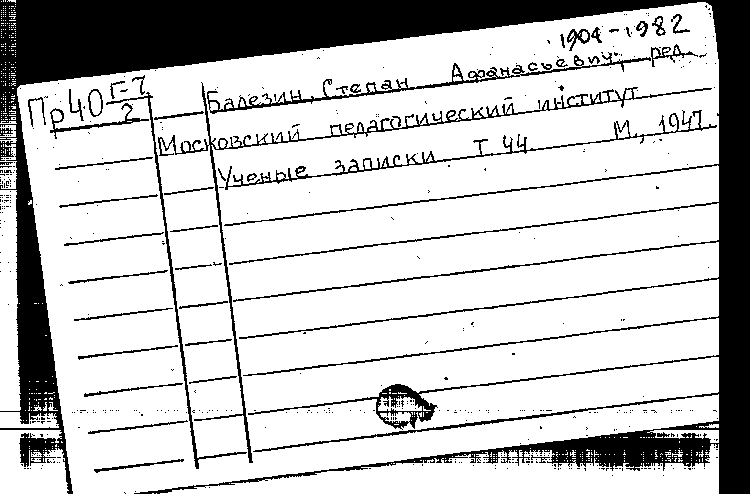 1904-1982
Пр40 Г-7/2 Балезин, Степан Афанасьевич, ред.
Московский педагогический институт.
Ученые записки Т. 44 М., 1947.